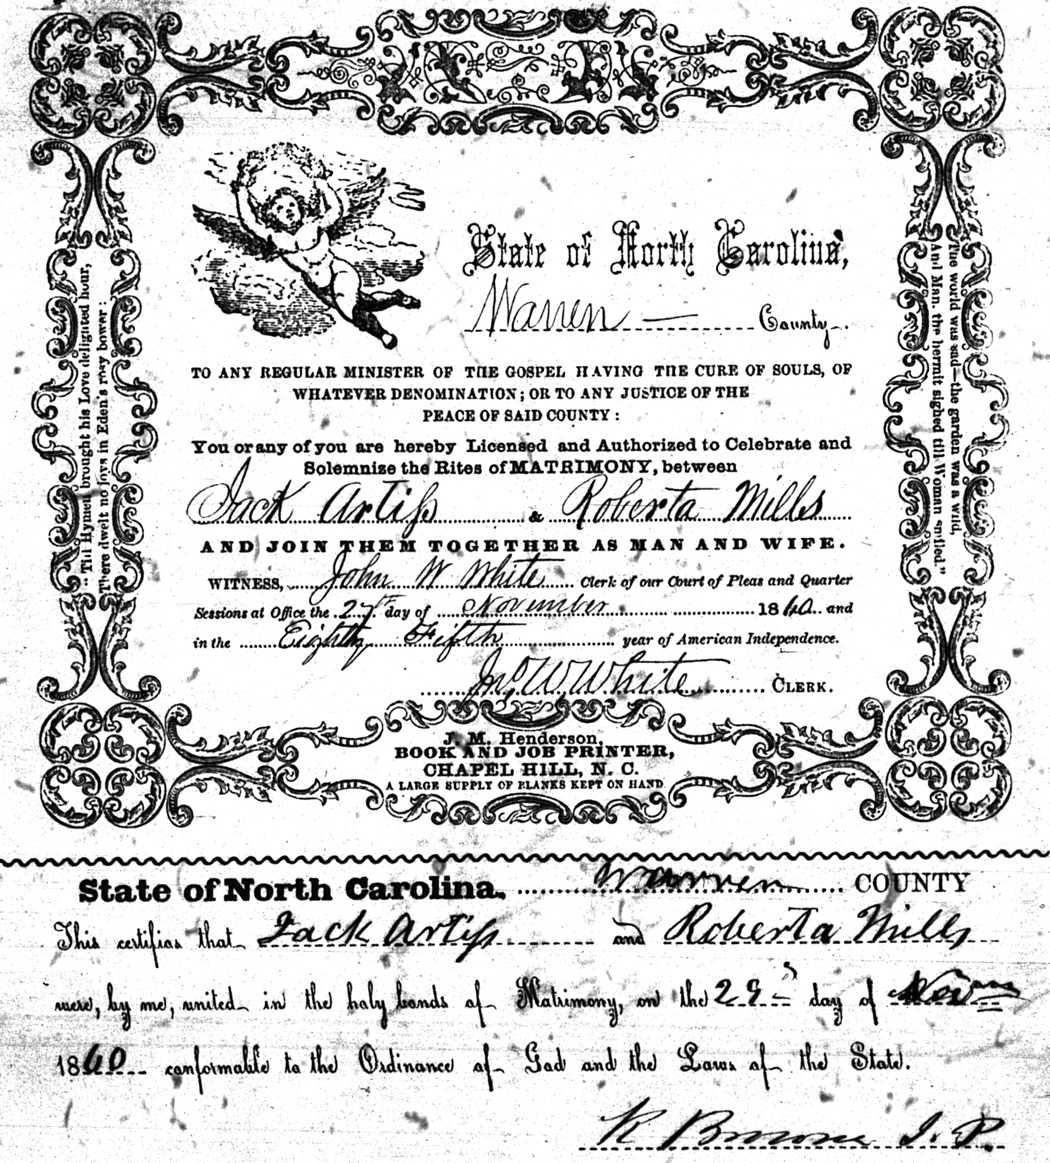 State of North Carolina,
Warren County.
TO ANY REGULAR MINISTER OF THE GOSPEL HAVING THE CURE OF SOULS, OF
WHATEVER DENOMINATION; OR TO ANY JUSTICE OF THE
PEACE OF SAID COUNTY:
You or any of you are hereby Licensed and Authorized to Celebrate and
Solemnize the Rites of MATRIMONY, between
Jack Artiss & Roberta Mills
AND JOIN THEM TOGETHER AS MAN AND WIFE.
WITNESS, John W White Clerk of our Court of Pleas and Quarter
Sessions at Office the 27th day of November 1860 and
in the Eighty Fifth year of American Independence.
Jno W White CLERK.
"Till Hymen brought his Love delighted hour,
There dwelt no joys in Eden's rosy bower:
The world was sad—the garden was a wild,
And Man, the hermit sighed till Woman smiled."
J. M. Henderson,
BOOK AND JOB PRINTER,
CHAPEL HILL, N. C.
A LARGE SUPPLY OF BLANKS KEPT ON HAND
State of North Carolina. Warren COUNTY
This certifies that Jack Artiss and Roberta Mills
were, by me, united in the holy bonds of Matrimony, on the 29 day of
1860 conformable to the Ordinance of God and the Laws of the State.
K Browne J. P.